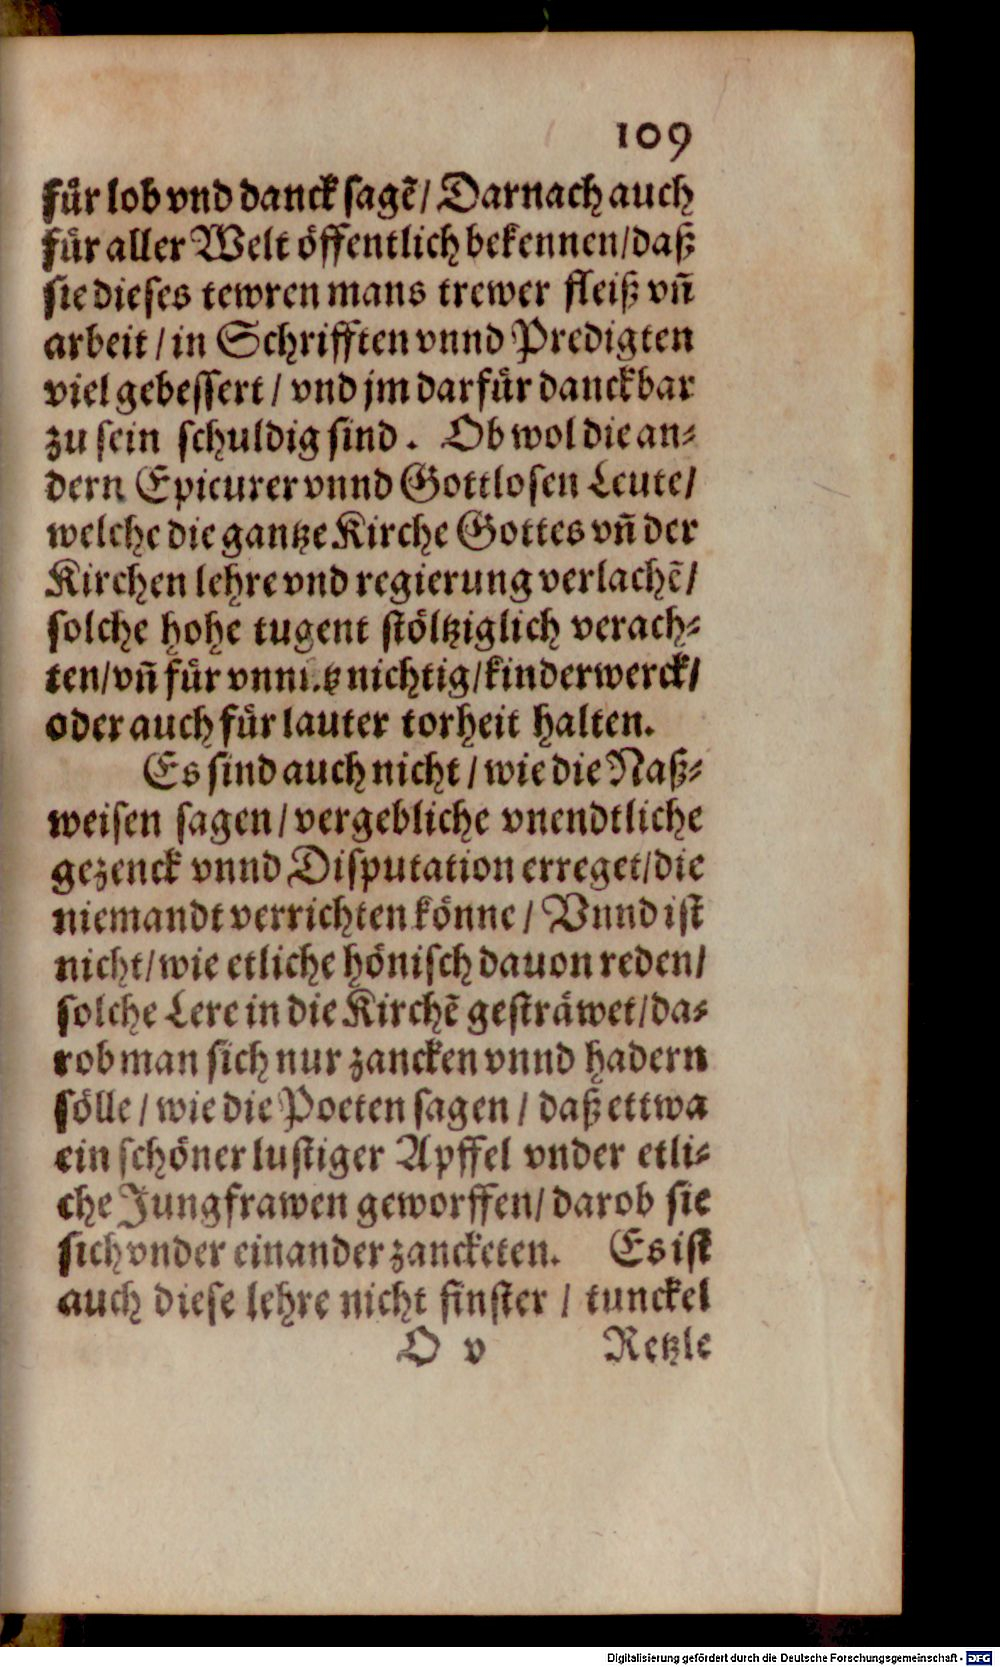 109
fůr lob vnd danck sagẽ/ Darnach auch
fůr aller Welt öffentlich bekennen/daß
sie dieses tewren mans trewer fleiß vñ
arbeit/in Schrifften vnnd Predigten
viel gebessert/ vnd jm darfůr danckbar
zu sein schuldig sind. Ob wol die an-
dern Epicurer vnnd Gottlosen Leute/
welche die gantze Kirche Gottes vñ der
Kirchen lehre vnd regierung verlachẽ/
solche hohe tugent stöltziglich verach-
ten/vñ fůr nichtig/kinderwerck/
oder auch fůr lauter torheit halten.
Es sind auch nicht/wie die Naß-
weisen sagen/vergebliche vnendtliche
gezenck vnnd Disputation erreget/die
niemandt verrichten könne/ Vnnd ist
nicht/wie etliche hönisch dauon reden/
solche Lere in die Kirchẽ gesträwet/da-
rob man sich nur zancken vnnd hadern
sölle/wie die Poeten sagen/ daß ettwa
ein schöner lustiger Apffel vnder etli-
che Jungfrawen geworffen/darob sie
sich vnder einander zancketen. Es ist
auch diese lehre nicht finster/ tunckel
O v Retzle
Digitalisierung gefördert durch die Deutsche Forschungsgemeinschaft - DFG